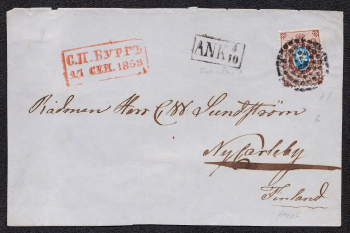 С.П.БУРГЪ
17 СЕН. 1858
ANK 4/10
Rådman Herr C W Sundström
Nycarleby
Finland